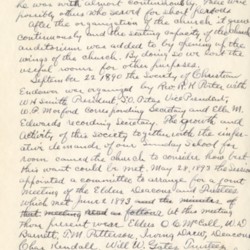 he was with almost continuously. There were
possibly others who served for short periods.
After the organization of the church it grew
continuously and the seating capacity of the church
auditorium was added to by opening up the
wings of the church. By doing so we lost the
useful rooms for other purposes.
September 22, 1890 the Society of Christian
Endeavor was organized by Rev. R. H. Pate, with
W. H. Smith President, D. O. Pate, Vice President,
W. F. Morford Corresponding Secretary and Ella M.
Edwards Recording Secretary. The growth and
activity of this society together with the imper-
ative demands of our Sunday School for
room caused the church to consider how best
this want could be met. May 28, 1893 the session
appointed a committee to arrange for a joint
meeting of the Elders Deacons and Trustees
which met June 2, 1893 and the minutes of
that meeting read as follows: At this meeting
there present were, Elders O. O. McCall, W. D.
Garrett, B. M. Patterson, Irving
Chas. Kendall, Will W. Gates, Trustees